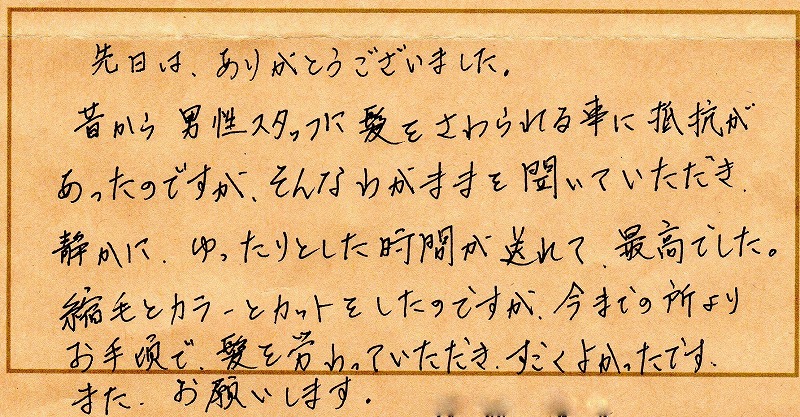 先日は、ありがとうございました。
昔から男性スタッフに髪をさわられる事に抵抗が
あったのですが、そんなわがままを聞いていただき、
静かに、ゆったりとした時間が送れて、最高でした。
縮毛とカラーとカットをしたのですが、今までの所より
お手頃で、髪を労わっていただき、すごくよかったです、
また、お願いします。